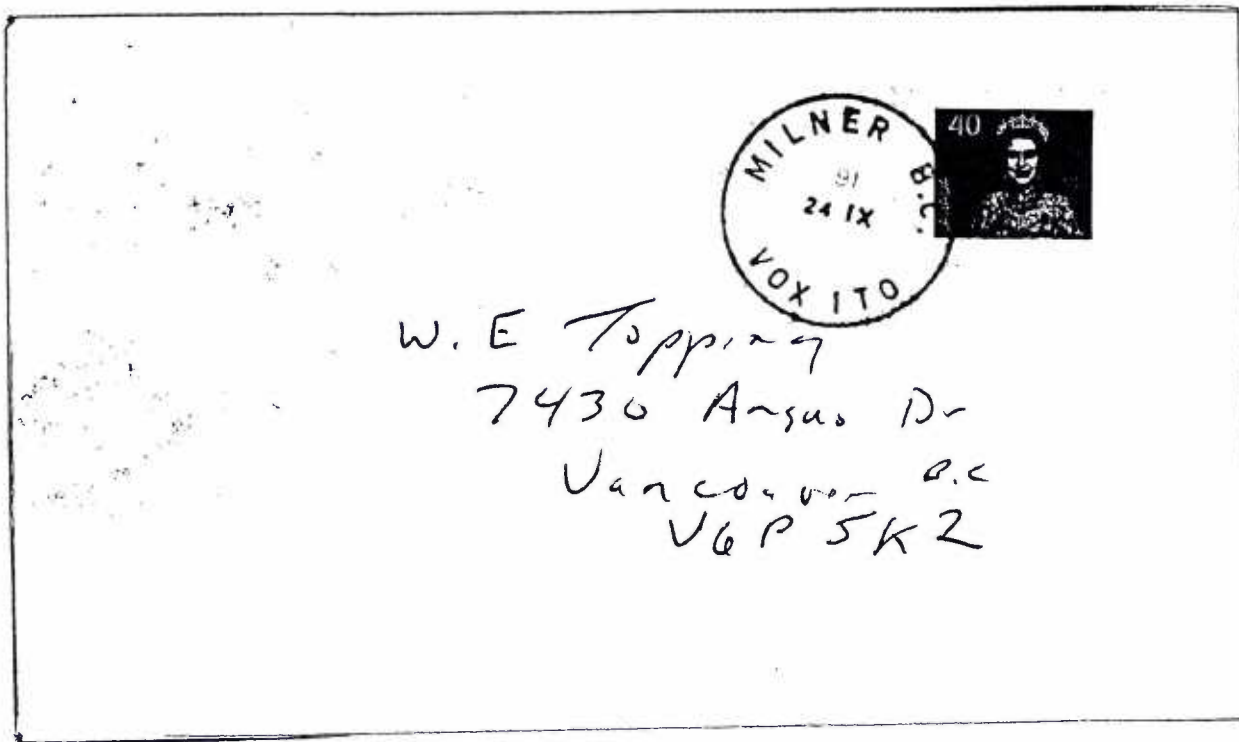 MILNER B.C.
91
24 IX
VOX ITO
40
W. E Topping
7430 Angus Dr
Vancouver B.C
V6P 5K2